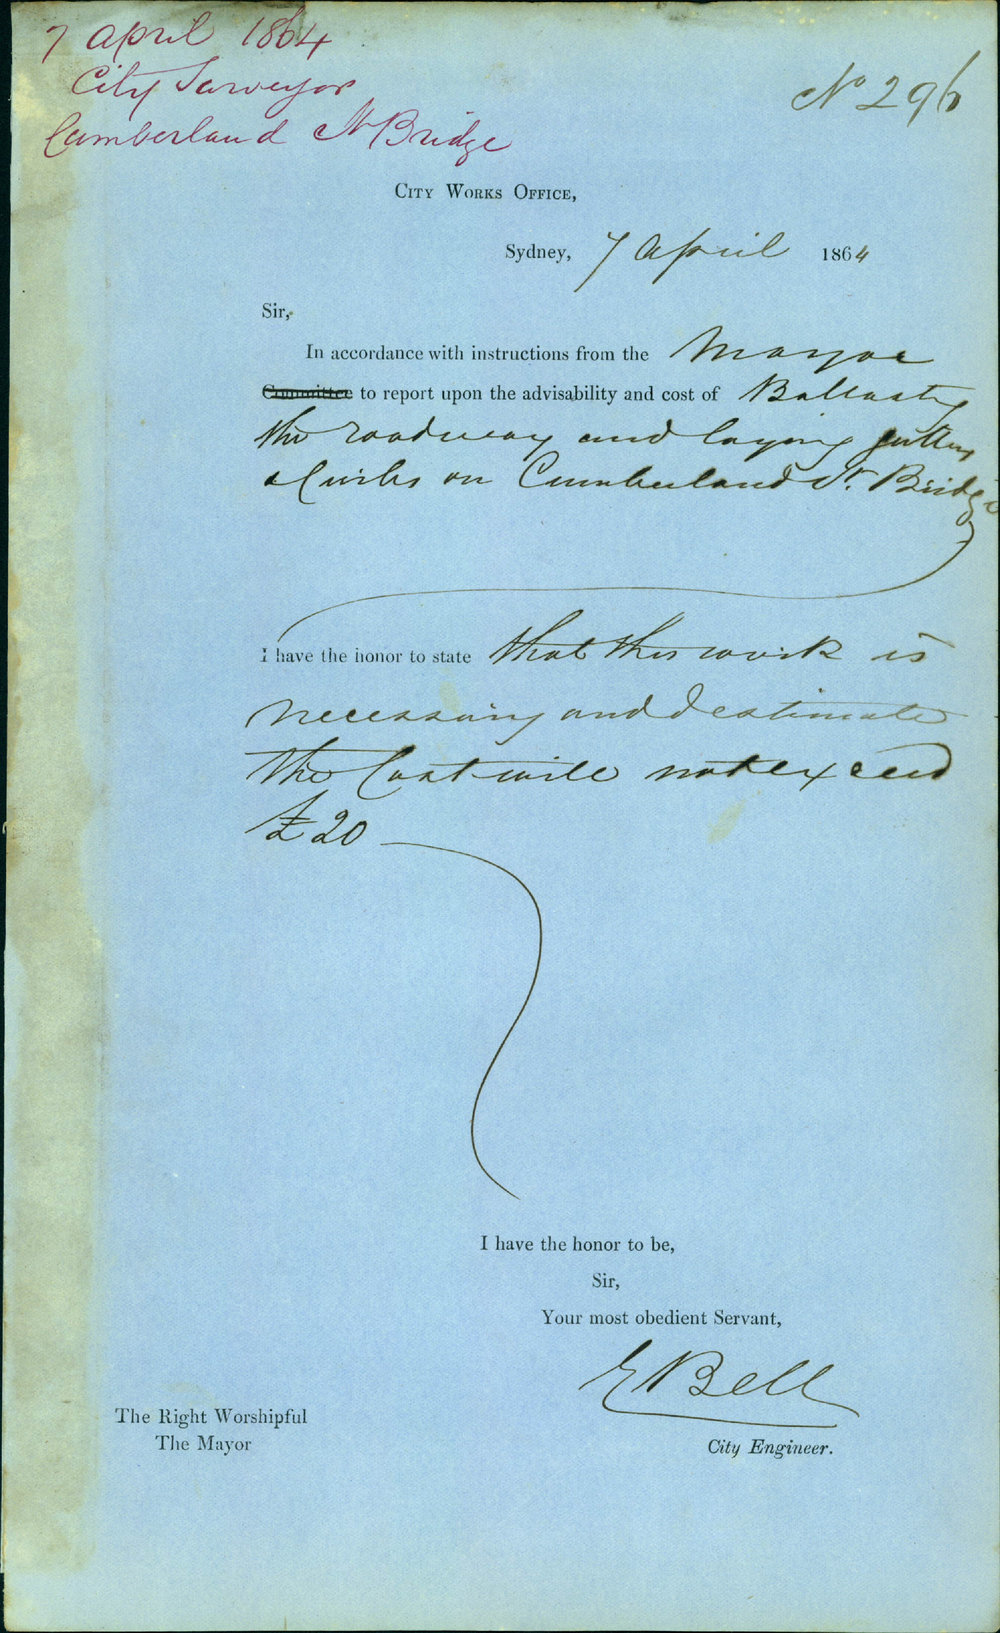 7 April 1864
City Surveyor
Cumberland St Bridge
No 296
City Works Office,
Sydney, 7 April 1864
Sir,
In accordance with instructions from the Mayor
Committee to report upon the advisability and cost of Ballasting
the roadway and laying gutters
& Curbs on Cumberland St. Bridge
I have the honor to state that this work is
necessary and I estimate
the Cost will not exceed
£20
I have the honor to be,
Sir,
Your most obedient Servant,
E Bell
The Right Worshipful
The Mayor
City Engineer.